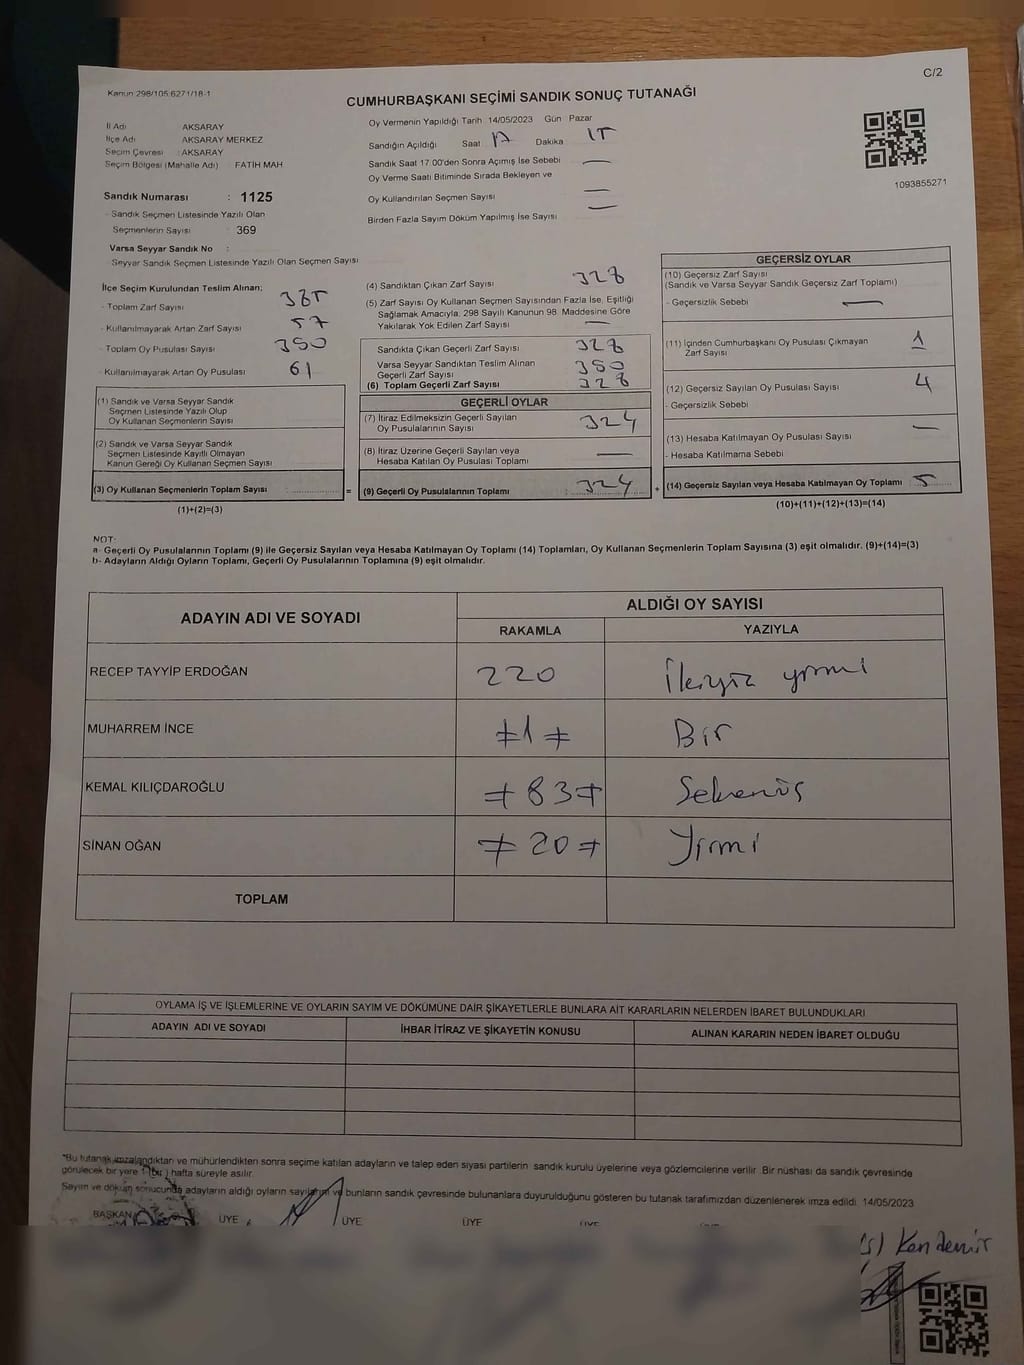 Kanun 298/105 6271/18-1
C/2
CUMHURBAŞKANI SEÇİMİ SANDIK SONUÇ TUTANAĞI
İl Adı AKSARAY
İlçe Adı AKSARAY MERKEZ
Seçim Çevresi : AKSARAY
Seçim Bölgesi (Mahalle Adı) : FATİH MAH
Sandık Numarası : 1125
- Sandık Seçmen Listesinde Yazılı Olan
Seçmenlerin Sayısı : 369
Varsa Seyyar Sandık No :
- Seyyar Sandık Seçmen Listesinde Yazılı Olan Seçmen Sayısı
Oy Vermenin Yapıldığı Tarih 14/05/2023 Gün Pazar
Sandığın Açıldığı Saat 17 Dakika 15
Sandık Saat 17:00'den Sonra Açımış İse Sebebi —
Oy Verme Saati Bitiminde Sırada Bekleyen ve
Oy Kullandırılan Seçmen Sayısı —
Birden Fazla Sayım Döküm Yapılmış İse Sayısı —
1093855271
İlçe Seçim Kurulundan Teslim Alınan;
- Toplam Zarf Sayısı : 385
- Kullanılmayarak Artan Zarf Sayısı : 57
- Toplam Oy Pusulası Sayısı : 350
- Kullanılmayarak Artan Oy Pusulası : 61
(1) Sandık ve Varsa Seyyar Sandık
Seçmen Listesinde Yazılı Olup
Oy Kullanan Seçmenlerin Sayısı
(2) Sandık ve Varsa Seyyar Sandık
Seçmen Listesinde Kayıtlı Olmayan
Kanun Gereği Oy Kullanan Seçmen Sayısı
(3) Oy Kullanan Seçmenlerin Toplam Sayısı :
(1)+(2)=(3)
(4) Sandıktan Çıkan Zarf Sayısı 328
(5) Zarf Sayısı Oy Kullanan Seçmen Sayısından Fazla İse, Eşitliği
Sağlamak Amacıyla, 298 Sayılı Kanunun 98. Maddesine Göre
Yakılarak Yok Edilen Zarf Sayısı —
Sandıkta Çıkan Geçerli Zarf Sayısı 328
Varsa Seyyar Sandıktan Teslim Alınan
Geçerli Zarf Sayısı 350
(6) Toplam Geçerli Zarf Sayısı 328
GEÇERLİ OYLAR
(7) İtiraz Edilmeksizin Geçerli Sayılan
Oy Pusulalarının Sayısı 324
(8) İtiraz Üzerine Geçerli Sayılan veya
Hesaba Katılan Oy Pusulası Toplamı —
= (9) Geçerli Oy Pusulalarının Toplamı : 324
GEÇERSİZ OYLAR
(10) Geçersiz Zarf Sayısı
(Sandık ve Varsa Seyyar Sandık Geçersiz Zarf Toplamı)
- Geçersizlik Sebebi —
(11) İçinden Cumhurbaşkanı Oy Pusulası Çıkmayan
Zarf Sayısı 1
(12) Geçersiz Sayılan Oy Pusulası Sayısı 4
- Geçersizlik Sebebi
(13) Hesaba Katılmayan Oy Pusulası Sayısı —
- Hesaba Katılmama Sebebi
+ (14) Geçersiz Sayılan veya Hesaba Katılmayan Oy Toplamı 5
(10)+(11)+(12)+(13)=(14)
NOT:
a- Geçerli Oy Pusulalarının Toplamı (9) ile Geçersiz Sayılan veya Hesaba Katılmayan Oy Toplamı (14) Toplamları, Oy Kullanan Seçmenlerin Toplam Sayısına (3) eşit olmalıdır. (9)+(14)=(3)
b- Adayların Aldığı Oyların Toplamı, Geçerli Oy Pusulalarının Toplamına (9) eşit olmalıdır.
ADAYIN ADI VE SOYADI ALDIĞI OY SAYISI
RAKAMLA YAZIYLA
RECEP TAYYİP ERDOĞAN 220 İkiyüz yirmi
MUHARREM İNCE ≠1≠ Bir
KEMAL KILIÇDAROĞLU ≠83≠ Seksenüç
SİNAN OĞAN ≠20≠ Yirmi
TOPLAM
OYLAMA İŞ VE İŞLEMLERİNE VE OYLARIN SAYIM VE DÖKÜMÜNE DAİR ŞİKAYETLERLE BUNLARA AİT KARARLARIN NELERDEN İBARET BULUNDUKLARI
ADAYIN ADI VE SOYADI İHBAR İTİRAZ VE ŞİKAYETİN KONUSU ALINAN KARARIN NEDEN İBARET OLDUĞU
"Bu tutanak imzalandıktan ve mühürlendikten sonra seçime katılan adayların ve talep eden siyasi partilerin sandık kurulu üyelerine veya gözlemcilerine verilir .Bir nüshası da sandık çevresinde
görülecek bir yere 1 (bir ) hafta süreyle asılır.
Sayım ve döküm sonucunda adayların aldığı oyların sayılarını ve bunların sandık çevresinde bulunanlara duyurulduğunu gösteren bu tutanak tarafımızdan düzenlenerek imza edildi. 14/05/2023
BAŞKAN ÜYE ÜYE ÜYE ÜYE ÜYE